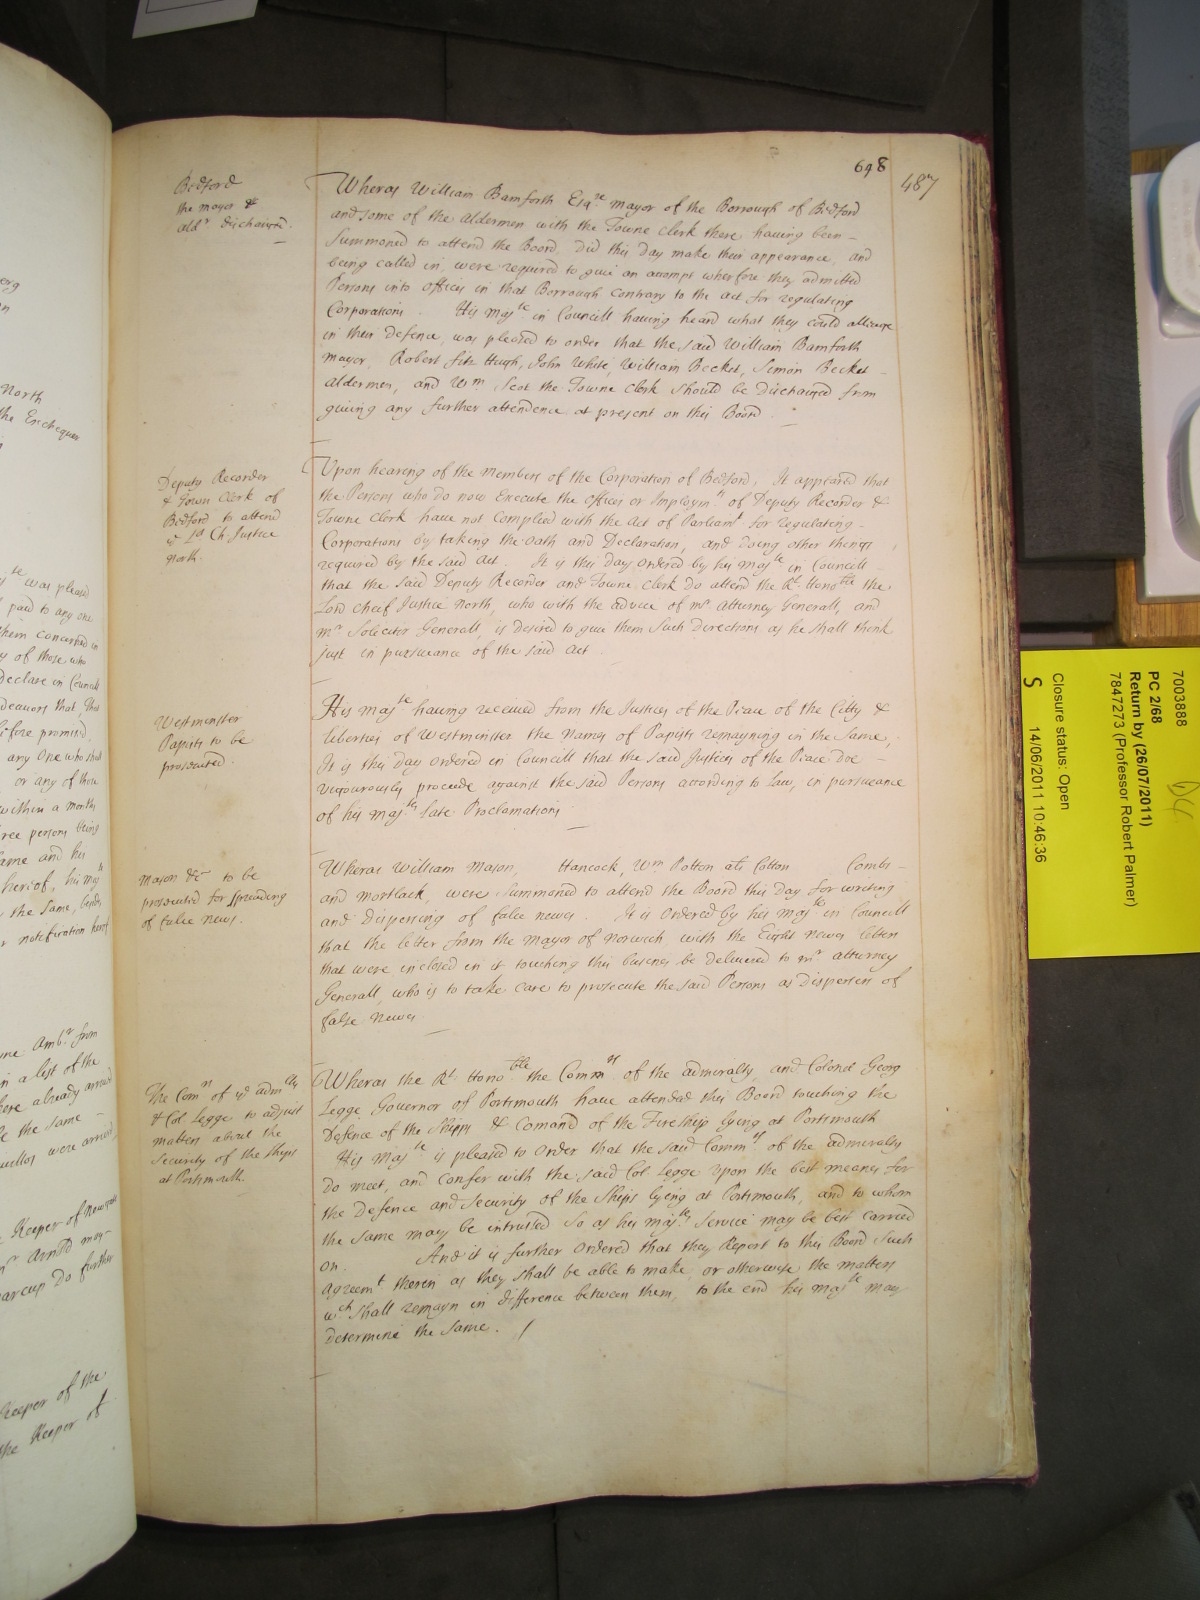 648
487
Bedford
the mayor &
ald.rs discharged.
Wheras William Bamforth Esq.re mayor of the Borrough of Bedford
and some of the Aldermen with the Towne Clerk there having been
Summoned to attend the Board Did this day make their appearance, and
being called in, were required to give an accompt wherfore they admitted
Persons into offices in that Borrough contrary to the act for regulating
Corporations. His maj.te in Councill having heard what they could alleage
in their Defence, was pleased to order that the said William Bamforth
mayor, Robert Fitz Hugh, John White, William Becket, Simon Becket
Aldermen, and Wm. Scot the Towne Clerk should be discharged from
giving any further attendence at present on this Board.
Deputy Recorder
& Town Clerk of
Bedford to attend
ye Ld Ch. Justice
North.
Upon hearing of the members of the Corporation of Bedford, It appeared that
the Persons who do now Execute the offices or Imploym.ts of Deputy Recorder &
Towne Clerk have not complied with the Act of Parliam.t for regulating
Corporations by taking the oath and Declaration, and doing other things
required by the said Act. It is this day ordered by his maj.te in Councill
that the said Deputy Recorder and Towne Clerk do attend the R.t Hono.ble the
Lord cheif Justice North, who with the advice of mr. Attorney Generall, and
mr. Soliciter Generall, is desired to give them such directions as he shall think
just in pursuance of the said Act.
Westminster
Papists to be
prosecuted.
His maj.te having received from the Justices of the Peace of the Citty &
liberties of Westminster the Names of Papists remayning in the same,
It is this day ordered in Councill that the said Justices of the Peace doe
vigourously proceede against the said Persons according to Law, in pursuance
of his maj.tes late Proclamations
Mason &c. to be
prosecuted for spreading
of false news.
Wheras William Mason, Hancock, Wm. Potton als Cotton Combs
and mortlack, were summoned to attend the Board this Day for writing
and dispersing of false newes. It is ordered by his maj.te in Councill
that the letter from the mayor of Norwich, with the Eight Newes letters
that were inclosed in it touching this busenes be delivered to mr. Attorney
Generall, who is to take care to prosecute the said Persons as dispersers of
false Newes.
The Com.rs of ye adm.lty
& Col. Legge to adjust
matters about the
security of the ships
at Portsmouth.
Wheras the R.t Hono.ble the Comm.rs of the admiralty, and Colonel Georg
Legge Governor of Portsmouth have attended this Board touching the
Defence of the Shipps & Comand of the Fireship lying at Portsmouth
His Maj.te is pleased to order that the said Comm.rs of the admiralty
do meet, and confer with the said Col. Legge upon the best meanes for
the Defence and security of the Ships lying at Portsmouth, and to whom
the same may be intrusted So as his maj.ties service may be best carried
on. And it is further ordered that they Report to this Board such
agreem.t therein as they shall be able to make, or otherwise the matters
wch shall remayn in difference between them, to the end his maj.te may
determine the same.
7003888
PC 2/68
Return by (26/07/2011)
7847273 (Professor Robert Palmer)
Closure status: Open
S 14/06/2011 10:46:36
North
the Exchequer
was pleased
paid to any one
them concerned in
of those who
Declare in Councill
before promised.
any one who shall
or any of those
within a month
persons being
and his
hereof, his maj.te
the same, besides
notification hereof
Amb.r from
in a list of the
here already arrived
the same
were arrived
Keeper of Newgate
Arnold may
Do further
Keeper of the
the Keeper of